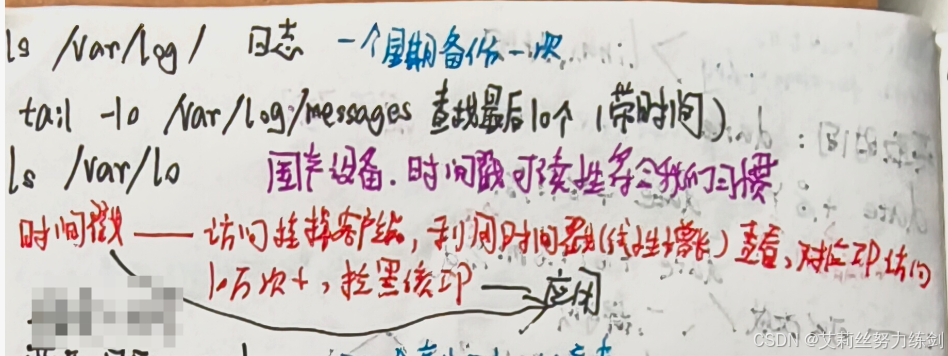 ls /var/log/ 日志 一个星期备份一次
tail -10 /var/log/messages 查找最后10个(带时间)
ls /var/lo 国产设备.时间戳可读性符合我们习惯
时间戳 —— 访问挂掉客户端,利用时间戳(线性增长)查看,对应IP访问
1万次+,拉黑该IP —— 应用
CSDN @艾莉丝努力练剑